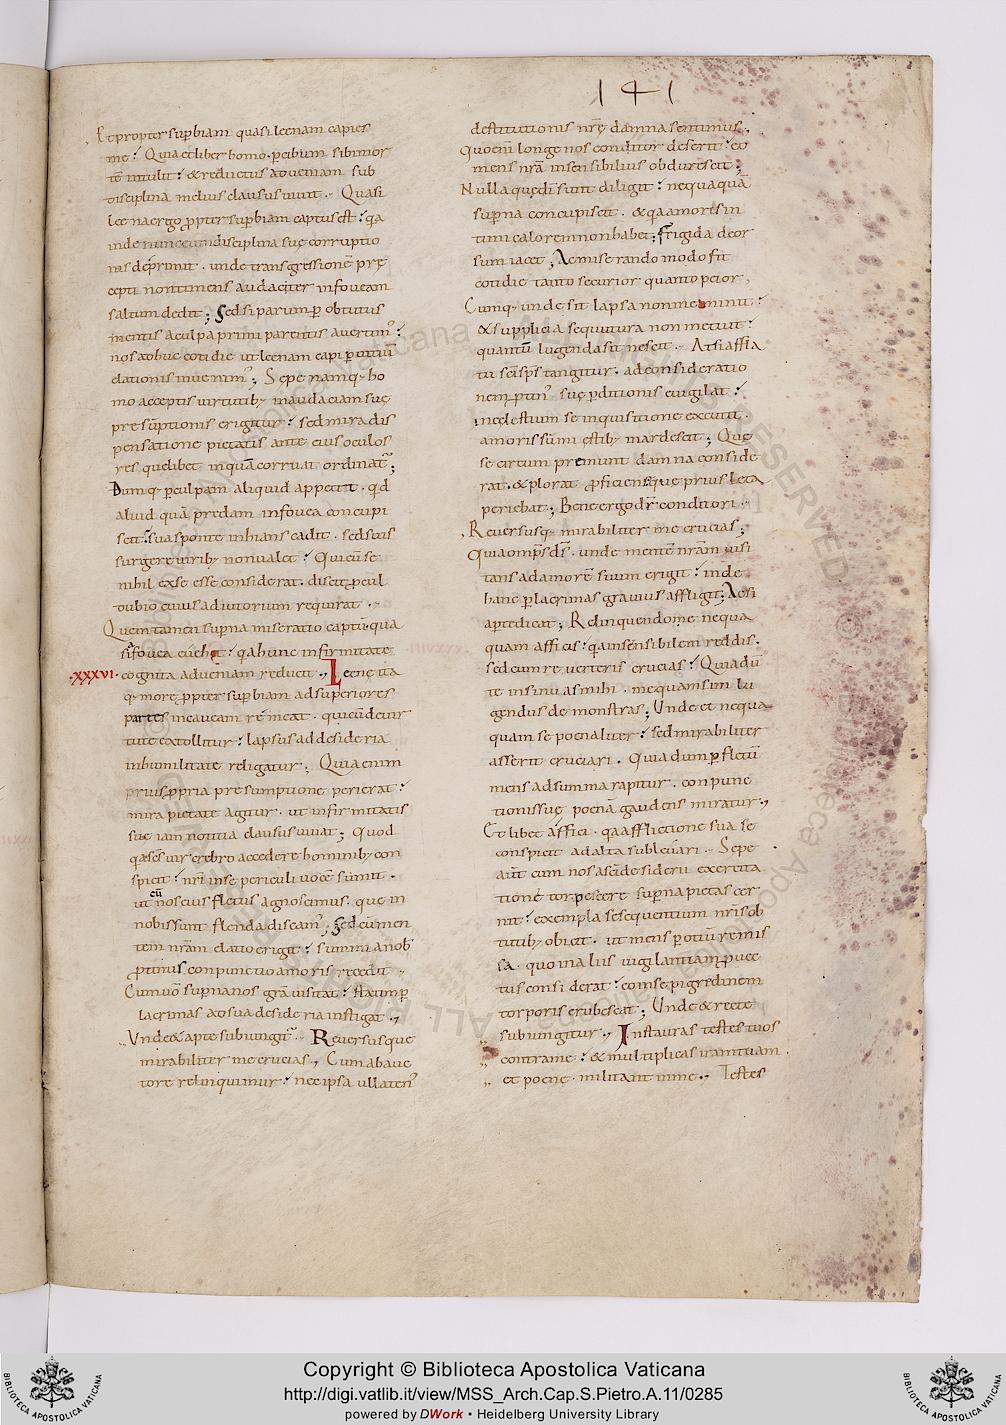 141
Et propter sup̄biam quasi leenam capies
me? Quia et liber homo. p̄ cibum sibi mor
tē intulit? & reductus ad veniam sub
disciplina melius clausus vivit. Quasi
leena ergo ꝓpter sup̄biam captus est? q̄a
inde nunc eum disciplina suę corruptio
nis dep̄rimit. unde transgressionē prę
cepti non timens audaciter in foveam
saltum dedit; Sed si parum p̄ obtutus
mentis a culpa primi parentis avertim'?
nos adhuc cotidie ut leenam capi p̄ vitiū
elationis invenim'; Sepe namq; ho
mo acceptis virtutib; in audaciam suę
presūptionis erigitur? sed mira dis
pensatione pietatis ante eius oculos
res quelibet in quā corruat ordinat̄;
Dumq; p̄ culpam aliquid appetit. qd
aliud quā predam in fovea concupi
scit? sua sponte inhians cadit. sed suis
surgere virib; non valet? Qui cū se
nihil ex se esse considerat. discit ꝓcul
dubio cuius adiutorium requirat.
Quem tamen sup̄na miseratio captū qua
si fovea evehit? q̄a hunc infirmitate
.XXXVI. cognita ad veniam reducit, Leenę ita
q; more ꝓpter sup̄biam ad superiores
partes in caveam remeat. qui cū de vir
tute extollitur? lapsus ad desideria
in humilitate religatur; Quia enim
prius ꝓpria presumptione perierat?
mira pietate agitur. ut infirmitatis
sue iam notitia clausus vivat; Quod
q̄a sēs vir crebro accedere hominib; con
spicit? nr̄i in se periculi vocē sumit.
ut cū nos eius fletus agnoscimus. que in
nobis sunt flenda discam'; Sed cū men
tem nr̄am elatio erigit? summi a nob'
ꝓtinus conpunctio amoris recedit
Cum vō sup̄na nos grā visitat? statim p̄
lacrimas ad sua desideria instigat.,
Unde & apte subiungit̄. Reversusque
mirabiliter me crucias., Cum ab auc
tore relinquimur? nec ipsa ullaten'
destitutionis nr̄ę damna sentimus.
Quo enī longe nos conditor deserit? eo
mens nr̄a insensibilius obdurescit;
Nulla quę dī sunt diligit? nequaquā
sup̄na concupiscit. & q̄a amoris in
timi calorem non habet; frigida deor
sum iacet; Ac miserando modo fit
cotidie tanto securior quanto peior,
Cumq; unde sit lapsa non meminit?
& supplicia sequutura non metuit?
quantū lugenda sit nescit. At si affla
tu sc̄i sp̄s tangitur. ad consideratio
nem ꝓtin' suę p̄ditionis evigilat?
in cęlestium se inquisitione excutit.
amoris sum̄i estib; inardescit; Que
se circum premunt damna conside
rat. & plorat ꝓficiens que prius leta
periebat; Bene ergo dr̄ conditori.
Reversusq; mirabiliter me crucias;
Quia omp̄s ds̄. unde mentē nr̄am visi
tans ad amorē suum erigit? inde
hanc p̄ lacrimas gravius affligit; Ac si
ap̄te dicat; Relinquendo me nequa
quam afficis? q̄a insensibilem reddis.
sed cum reverteris crucias? Quia dū
te insinuas mihi. me quam sim lu
gendus demonstras; Unde et nequa
quam se pœnaliter? sed mirabiliter
asserit cruciari. Quia dum p̄ fletū
mens ad summa rapitur. conpunc
tionis suę poenā gaudens miratur,
Et libet affici. q̄a afflictione sua se
conspicit ad alta sublevari. Sepe
aūt cum nos a sc̄i desiderii exercita
tione torpescere sup̄na pietas cer
nit? exempla se sequentium nr̄is ob
tutib; obicit. ut mens p̄ otiū remis
sa. quo in aliis vigilantiam ꝓvec
tus considerat? eo in se pigredinem
torporis erubescat; Unde & recte
subiungitur., Instauras testes tuos
contra me? & multiplicas iram tuam.
et poenę militant in me., Testes
Copyright © Biblioteca Apostolica Vaticana
http://digi.vatlib.it/view/MSS_Arch.Cap.S.Pietro.A.11/0285
powered by DWork • Heidelberg University Library